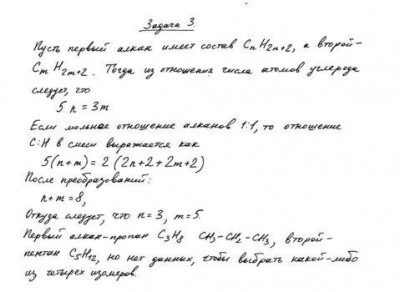 Задача 3.
Пусть первый алкан имеет состав CnH2n+2, а второй-
CmH2m+2. Тогда из отношения числа атомов углерода
следует, что
5n = 3m
Если мольное отношение алканов 1:1, то отношение
C:H в смеси выражается как
5(n+m) = 2(2n+2+2m+2)
После преобразований:
n+m = 8,
Откуда следует, что n=3, m=5.
Первый алкан-пропан C3H8 CH3-CH2-CH3, второй-
пентан C5H12, но нет данных, чтобы выбрать какой-либо
из четырех изомеров.